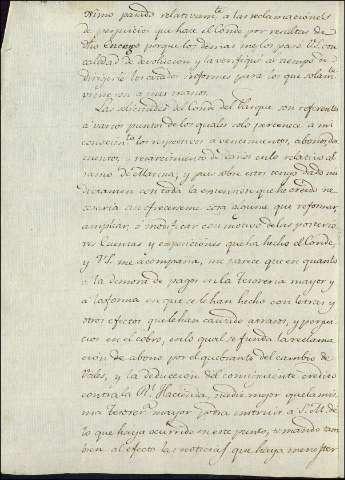 ximo pasado relativam.te a las reclamaciones
de perjuicios que hace el Conde por resultas de
dho Encargo porque los demas me los paso V.I. con
calidad de devolucion y la verifique al tiempo de
dirigirle los citados informes para lo que solam.te
vinieron a mis manos.
Las solicitudes del Conde del Parque son referentes
a varios puntos de los quales solo pertenece a mi
conocim.to los respectivos a vencimientos, abonos, des
cuentos, y resarcimiento de daños en lo relativo al
ramo de Marina; y pues sobre estos tengo dado mi
dictamen con toda la expresion que he creido ne
cesaria sin ofrecerseme cosa alguna que reformar,
ampliar, ó modificar con motivo de las posterio
res Cuentas y exposiciones que ha hecho el Conde,
y V.I. me acompaña, me parece que en quanto
a la demora de pagos en la Tesoreria mayor y
a la forma en que se le han hecho con letras y
otros efectos que le han causado atrasos, y perjui
cios en el cobro, en lo qual se funda la reclama
cion de abono por el quebranto del cambio de
Vales, y la deduccion del consiguiente credito
contra la R.l Hacienda, nadie mejor que la mis
ma Tesorer.a mayor podra instruir a S.M. de
lo que haya ocurrido en este punto, tomando tam
bien al efecto las noticias que haya menester